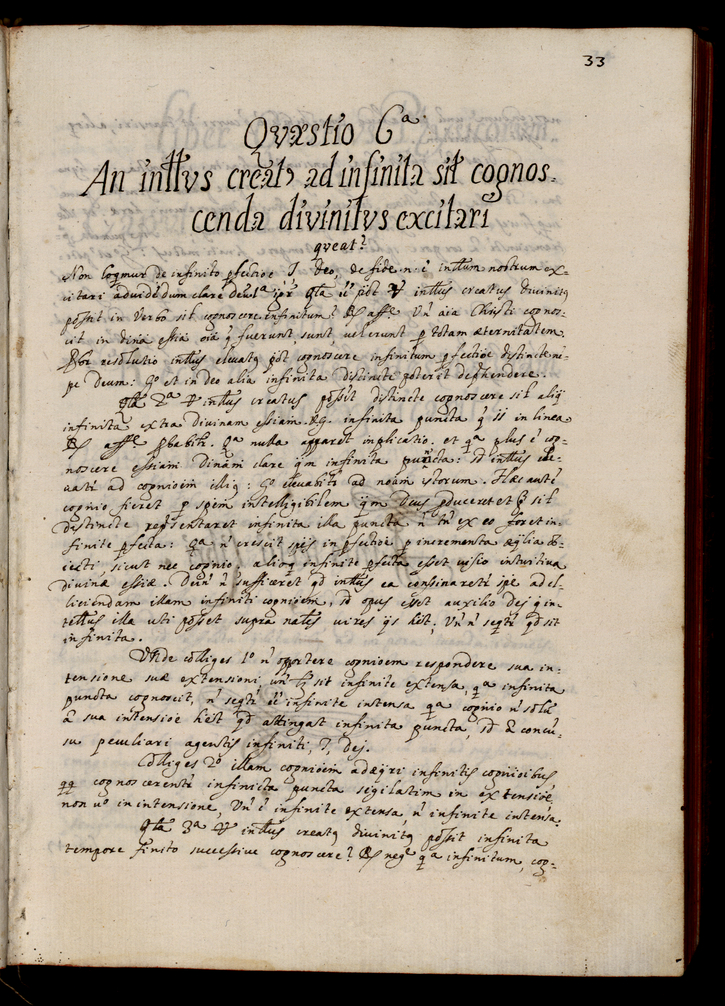 33
Qvæstio 6ª
An intt̃vs creatꝰ ad infinita sit cognos-
cenda divinitvs excitari
qveat?
Non loqmur de infinito pfectioe i Deo, de fide .n. ẽ inttum nostrum ex-
citari ad vidẽdum clare intt̃us creatus divinitꝰ
possit in Verbo sit cognoscere infinitum? R aff.e Vñ aĩa Christi cognos-
cit in divĩa essĩa oĩa q̃ fuerunt, sunt, vel erunt p totam æternitatem.
resolutio intt̃us elevatꝰ põt cognoscere infinitum pfectioe distincte nẽ-
pe Deum: Gº et in deo alia infinita distincte poterit dephendere.
Qta 2ª V intt̃us creatus possit distincte cognoscere sit aliq̃
infinita extra divinam essiam. v.g. infinita puncta q̃ st in linea
R aff.e pbabitr. qª nulla apparet implicatio. et qª plus ẽ cog-
noscere essiam Divĩam clare qm infinita puncta: sd intt̃us ele-
vatr ad cognioem illiꝰ: Gº elevabitr ad noam istorum. Hæc autẽ
cognio fieret p spem intelligibilem qm Deus pduceret et q̃ sit
distincte repsentaret infinita illa puncta ñ tñ ex eo foret in-
finite pfecta: qª ñ crescit spẽs in pfectioe p incrementa æq̃lia ob-
iecti sicut nec cognio, alioq infinite pfecta esset visio intuitiva
divinæ essiæ. Dein ñ sufficeret qd intt̃us ea consinaretr spẽ ad el-
liciendam illam infiniti cognioem, sd opus esset auxilio Dei q in-
tettus illa uti posset supra nates vires ijs hẽt, Vñ ñ seqtr qd sit
infinita.
Vñde colliges 1º ñ oportere cognioem respondere sua in-
tensione suæ extensioni, vñ lꝫ sit infinite extensa, qª infinita
puncta cognoscit, ñ seqtr ẽẽ infinite intensa qª cognio ñ solũ
à sua intensioe hẽt qd attingat infinita puncta, sd à concur-
su peculiari agentis infiniti, i, Dei.
Colliges 2º illam cognioem adæq̃ri infinitis cognioibus
qq cognoscerentr infinita puncta sigilatim in extensioẽ,
non vº in intensione, Vñ ẽ infinite extensa ñ infinite intensa.
Qta 3ª V intt̃us creatꝰ divinitꝰ possit infinita
tempore finito successive cognoscere? R neg.e qª infinitum, cog-